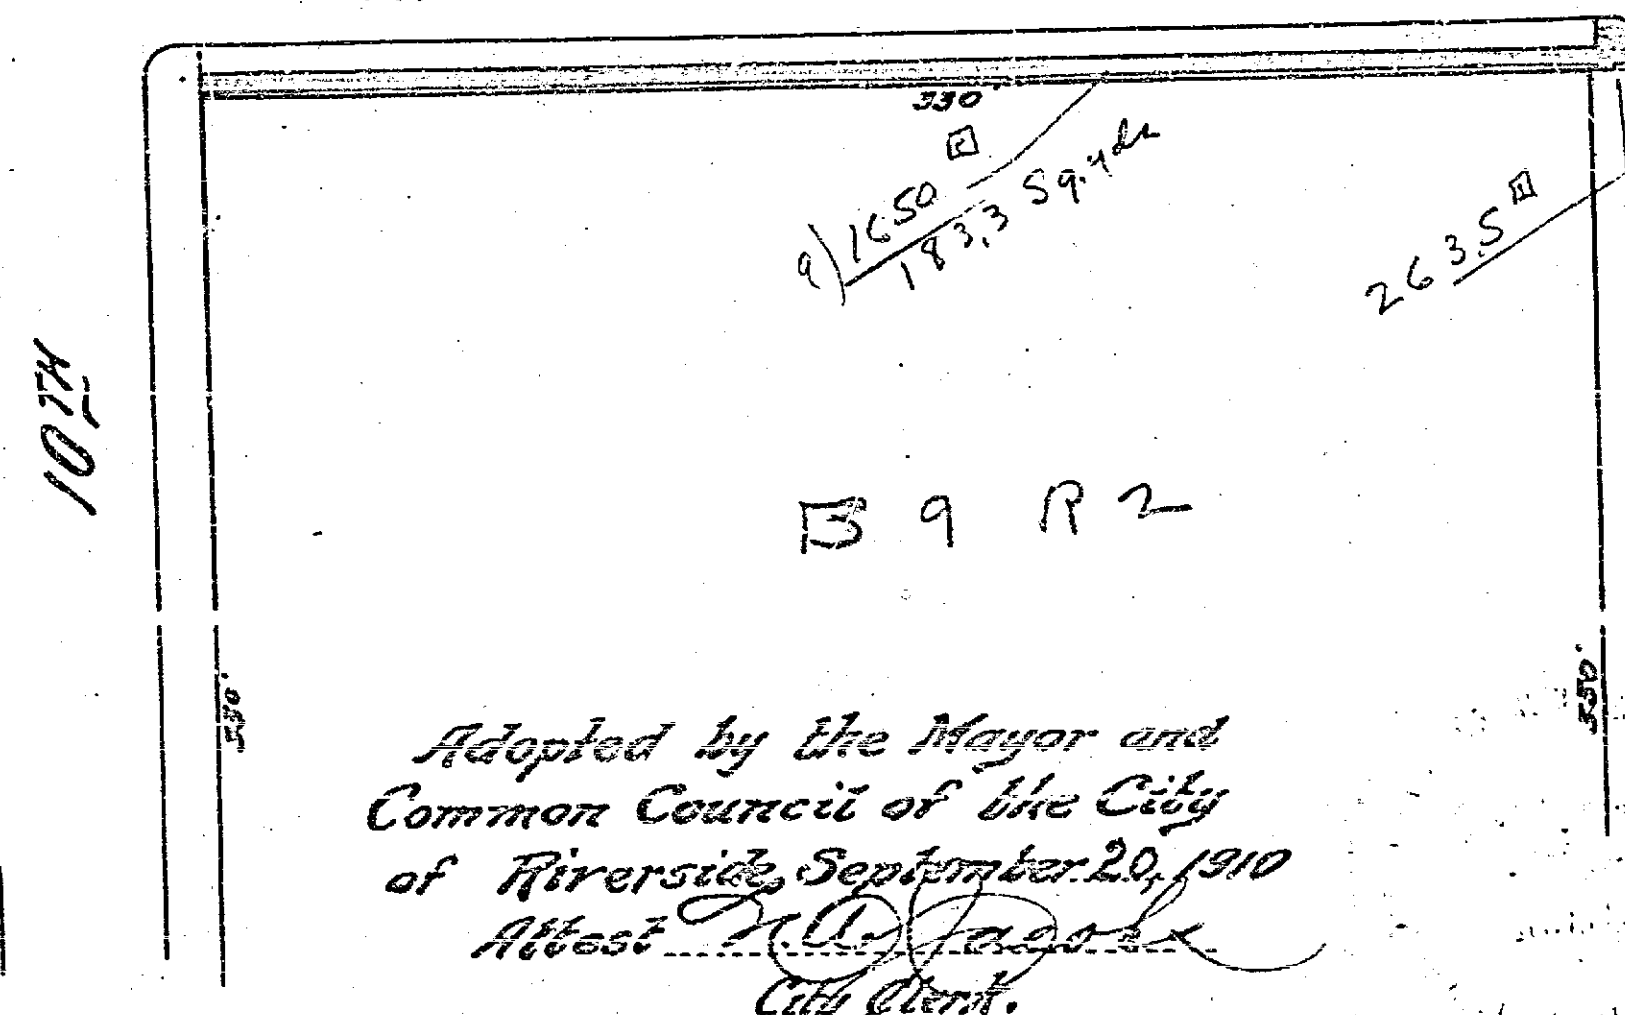 330'
9)1650
183.3 Sq. yds
263.5
10TH
B 9 R 2
330'
550'
Adopted by the Mayor and
Common Council of the City
of Riverside, September 20, 1910
Attest
City Clerk.